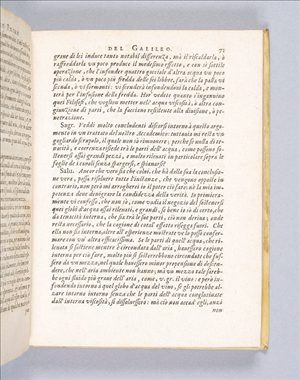 DEL GALILEO. 71
grane di lei induce tanto notabil differenza, mà il riscaldarla, ò
raffreddarla vn poco produce il medesimo effetto, e con sì sottile
operazione, che l'infonder quattro gocciole d'altra acqua vn poco
più calda, ò vn poco più fredda delle sei libbre, farà che la palla vi
scenda, ò vi sormonti: vi scenderà infondendoui la calda, e mon-
terà per l'infusione della fredda. Hor vedete quanto s'ingannino
quei Filosofi, che voglion metter nell'acqua viscosità, ò altra con-
giunzione di parti, che la facciano resistente alla diuisione, ò pe-
netrazione.
Sagr. Veddi molto concludenti discorsi intorno à questo argo-
mento in vn trattato del nostro Accademico: tuttauia mi resta vn
gagliardo scrupolo, il quale non sò rimuouere; perche se nulla di te-
nacità, e coerenza risiede trà le parti dell'acqua, come possono so-
stenersi assai grandi pezzi, e molto rileuati in particolare sopra le
foglie de i cauoli senza spargersi, e spianarsi?
Salu. Ancor che vero sia che colui, che hà dalla sua la conclusio-
ne vera, possa risoluere tutte l'instanze, che vengono opposte in
contrario, non però mi arrogherei io il poter ciò fare; nè la mia im-
potenza deue denigrare la candidezza della verità. Io primiera-
mente vi confesso, che non sò, come vadia il negozio del sostenersi
quei globi d'acqua assai rileuati, e grandi, se bene io sò di certo, che
da tenacità interna, che sia trà le sue parti, ciò non deriua; onde
resta necessario, che la cagione di cotal effetto risegga fuori. Che
ella non sia interna, oltre all'esperienze mostrate ve lo posso confer-
mare con vn'altra efficacissima. Se le parti di quell'acqua, che ri-
leuata si sostiene mentre è circondata dall'aria, hauessero cagione
interna per ciò fare, molto più si sosterrebbono circondate che fus-
sero da vn mezzo, nel quale hauessero minor propensione di descen-
dere, che nell'aria ambiente non hanno: mà vn mezzo tale sareb-
be ogni fluido più graue dell'aria, come, v. gr. il vino: e però in-
fondendo intorno à quel globo d'acqua del vino, se gli potrebbe al-
zare intorno intorno senza che le parti dell'acqua conglutinate
dall'interna viscosità, si dissoluessero: mà ciò non accad'egli, anzi
non